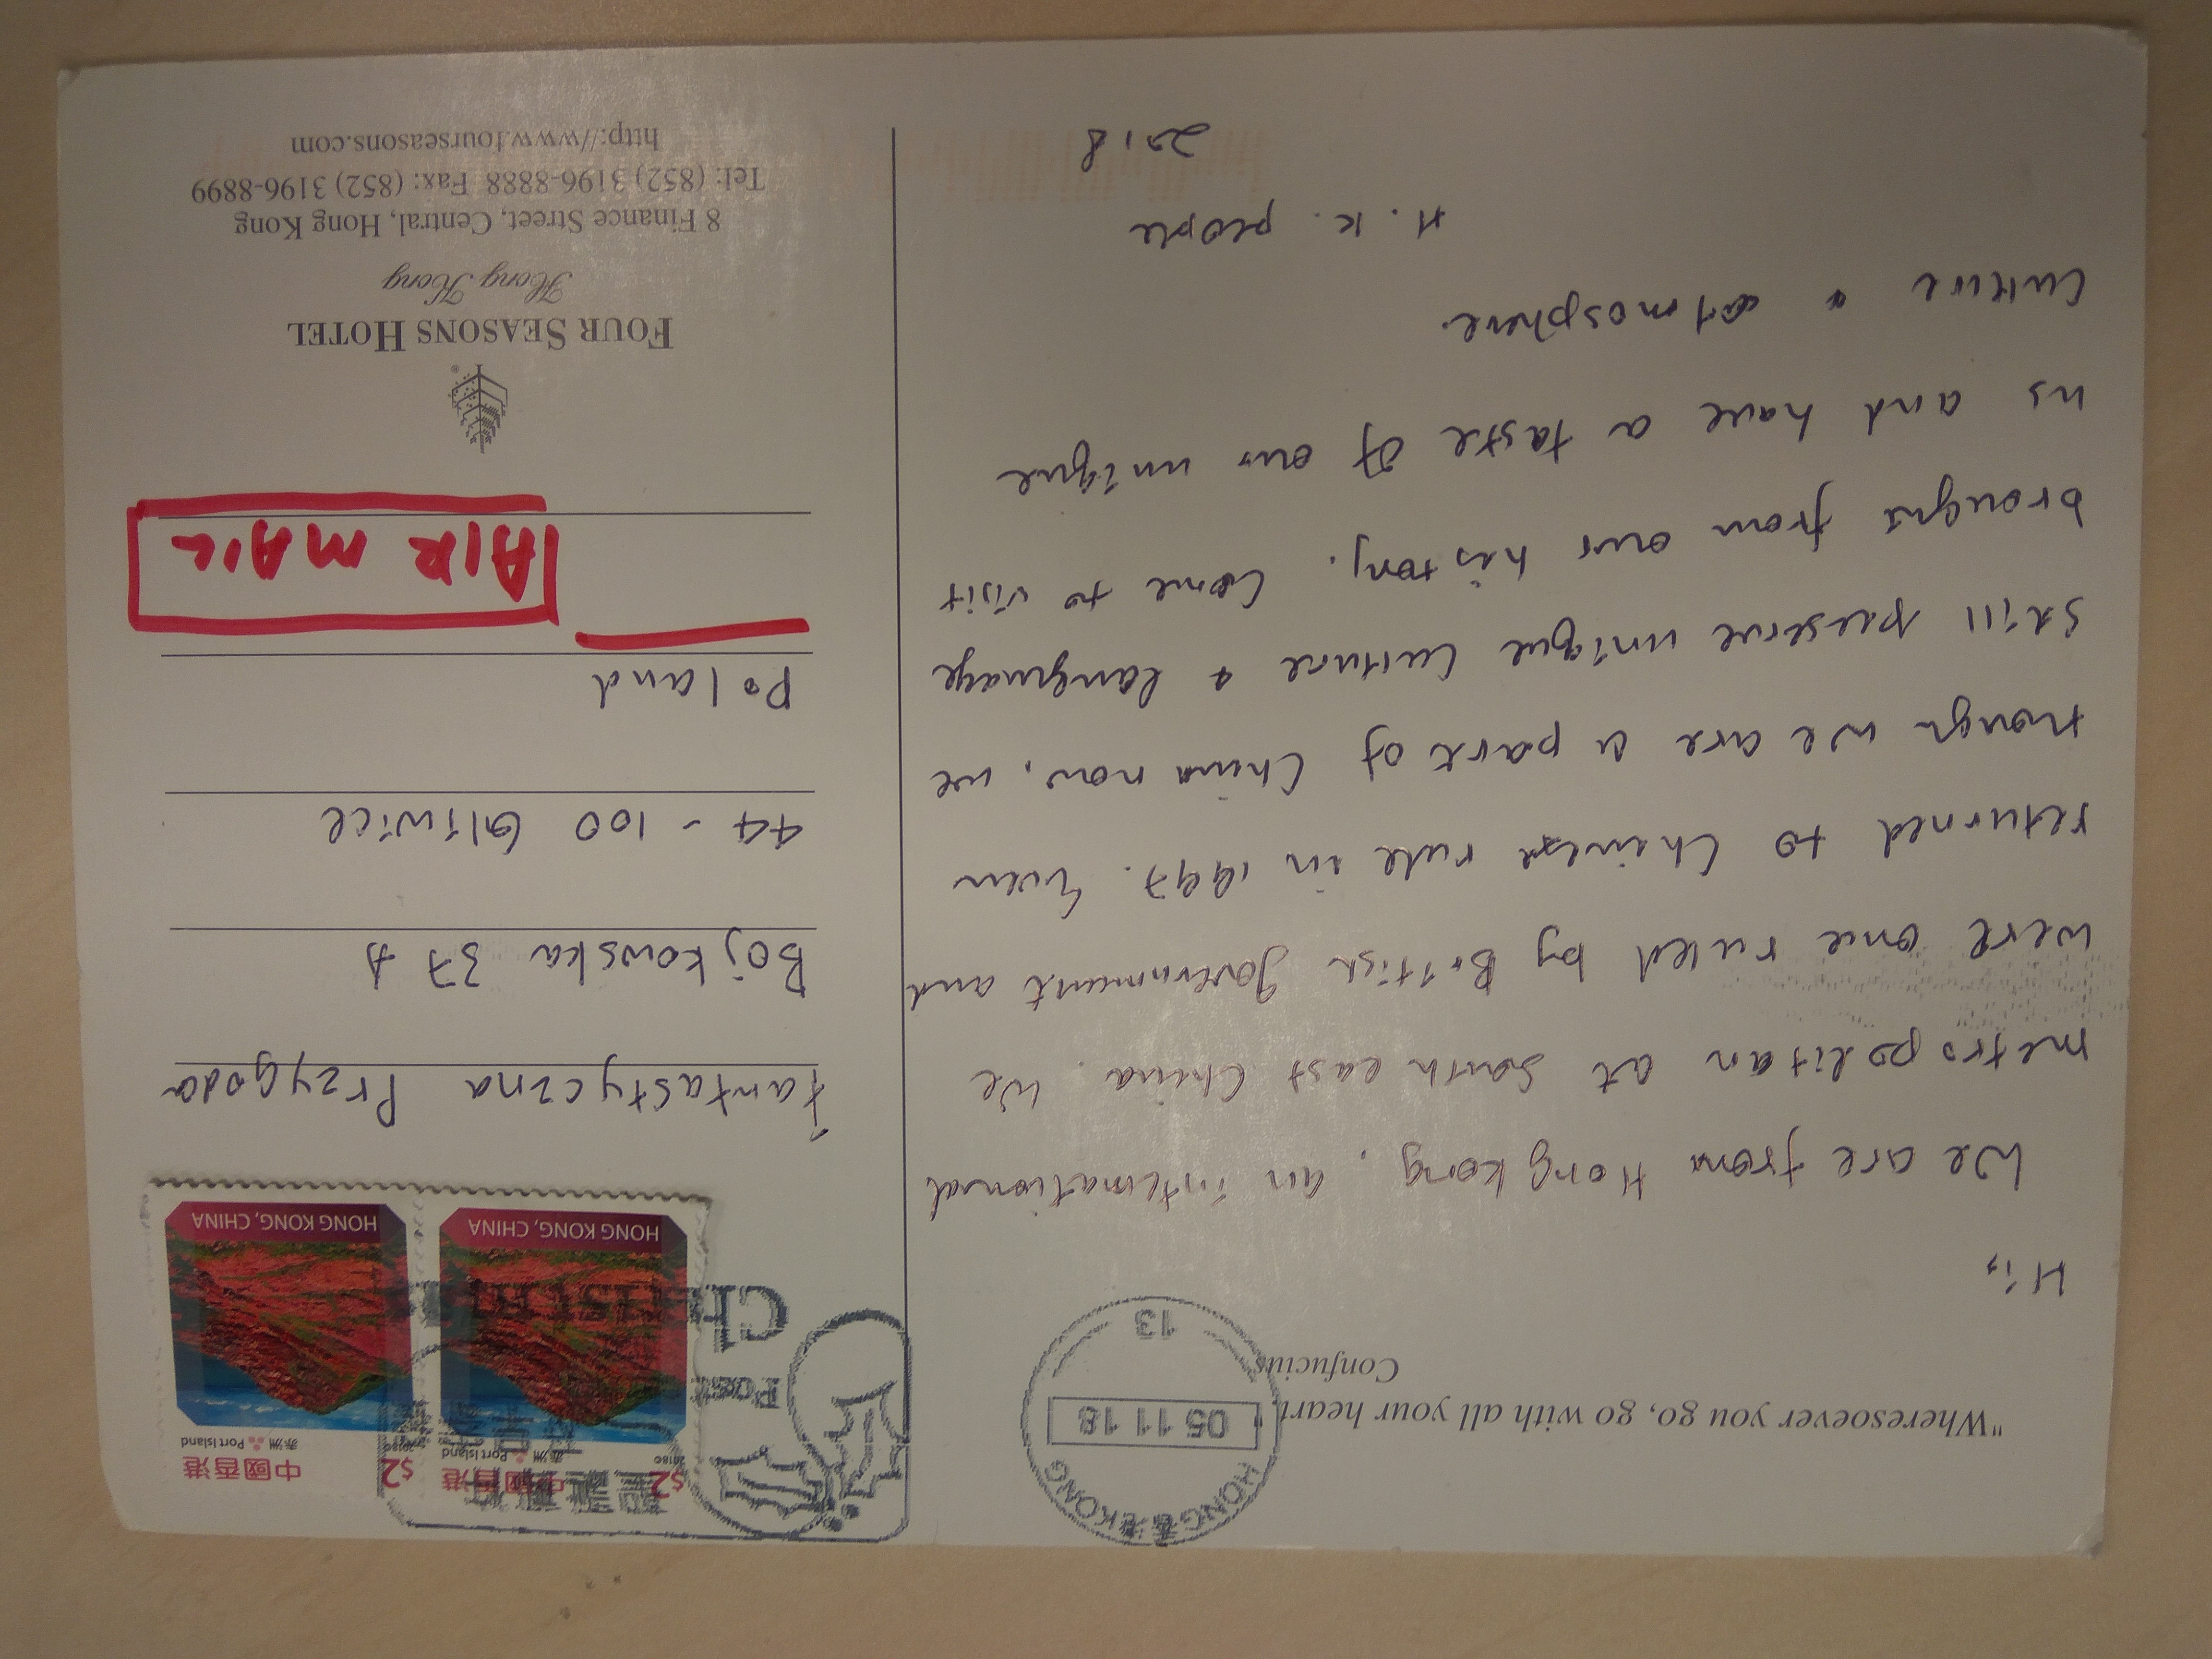 "Wheresoever you go, go with all your heart."
Confucius
HONG香港KONG
05 11 18
13
Hi,
We are from Hong Kong, an international
metropolitan at South east China. We
were once ruled by British Government and
returned to Chinese rule in 1997. Even
though we are a part of China now, we
still preserve unique culture & language
brought from our history. Come to visit
us and have a taste of our unique
culture & atmosphere.
H.K. people
2018
$2 中國香港
2018C 赤洲 Port Island
HONG KONG, CHINA
$2 中國香港
2018C 赤洲 Port Island
HONG KONG, CHINA
Fantastyczna Przygoda
Bojkowska 37 A
44-100 Gliwice
Poland
AIR MAIL
FOUR SEASONS HOTEL
Hong Kong
8 Finance Street, Central, Hong Kong
Tel: (852) 3196-8888 Fax: (852) 3196-8899
http://www.fourseasons.com